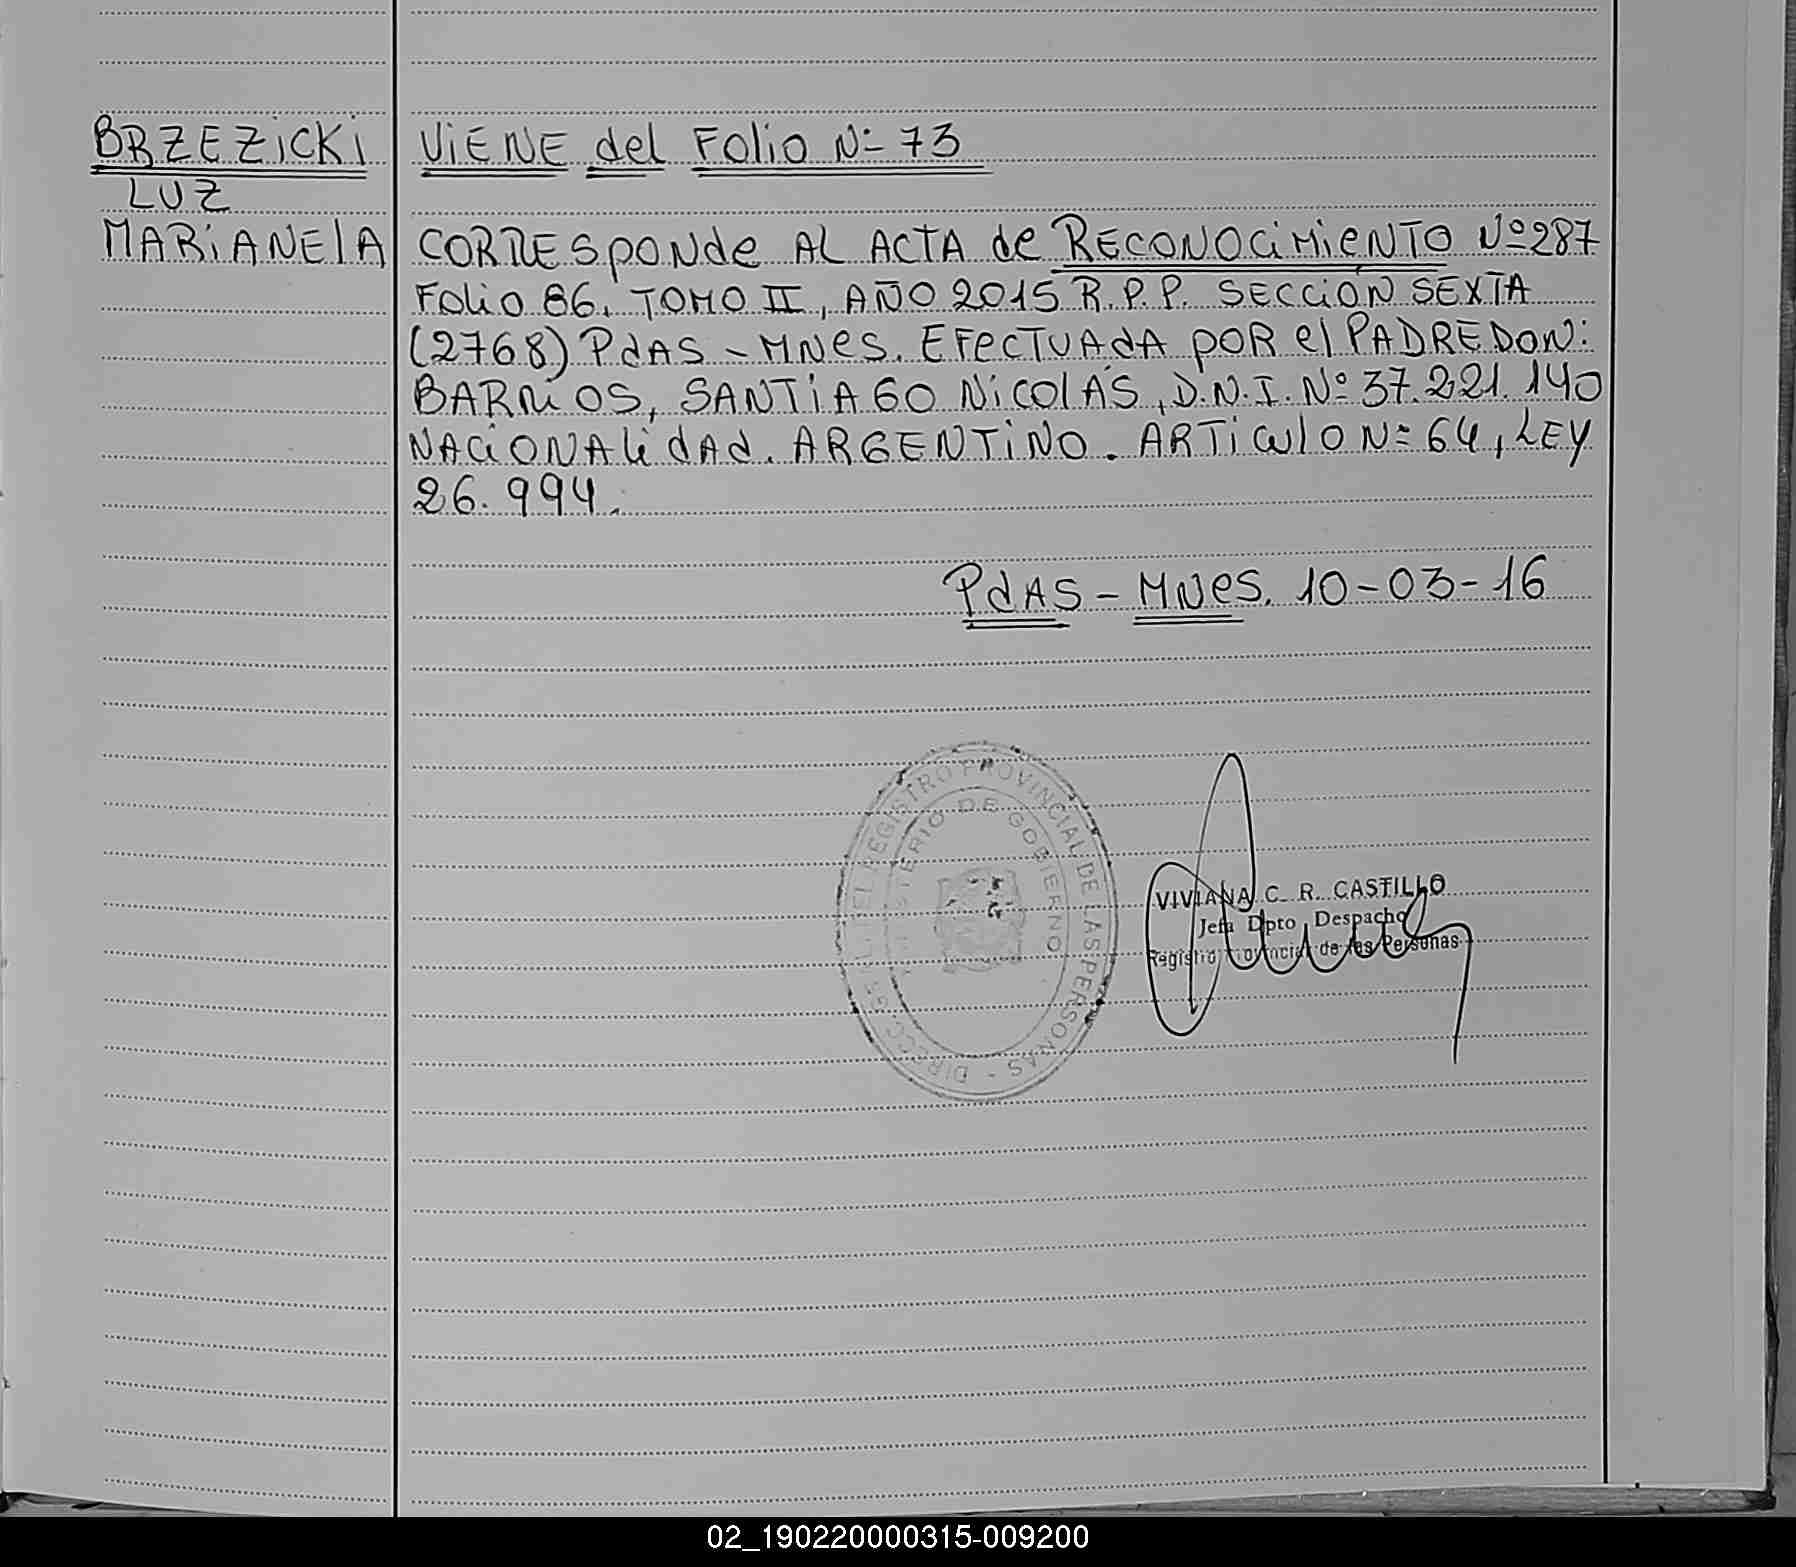 BRZEZICKI
LUZ
MARIANELA
VIENE del FOLIO Nº 73
CORRESPONDE AL ACTA de RECONOCIMIENTO Nº 287
FOLIO 86. TOMO II, AÑO 2015 R.P.P. SECCIÓN SEXTA
(2768) PdAS - MNES. EFECTUADA POR el PADRE DON:
BARRIOS, SANTIAGO NICOLÁS, D.N.I. Nº 37.221.140
NACIONALidAd. ARGENTINO. ARTICULO Nº 64, LEY
26.994.
PdAS - MNES. 10-03-16
REGISTRO PROVINCIAL DE LAS PERSONAS
DE GOBIERNO
VIVIANA C. R. CASTILLO
Jefa Dpto Despacho
Registro Provincial de las Personas
02_190220000315-009200